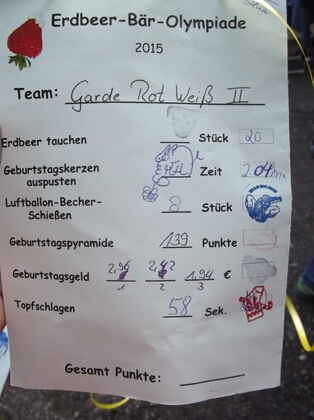 Erdbeer-Bär-Olympiade
2015
Team: Garde Rot Weiß II
Erdbeer tauchen Stück 20
Geburtstagskerzen auspusten Zeit
Luftballon-Becher-Schießen 8 Stück
Geburtstagspyramide 139 Punkte
Geburtstagsgeld 2,96 2,42 1,94 €
1 2 3
Topfschlagen 58 Sek.
Gesamt Punkte: